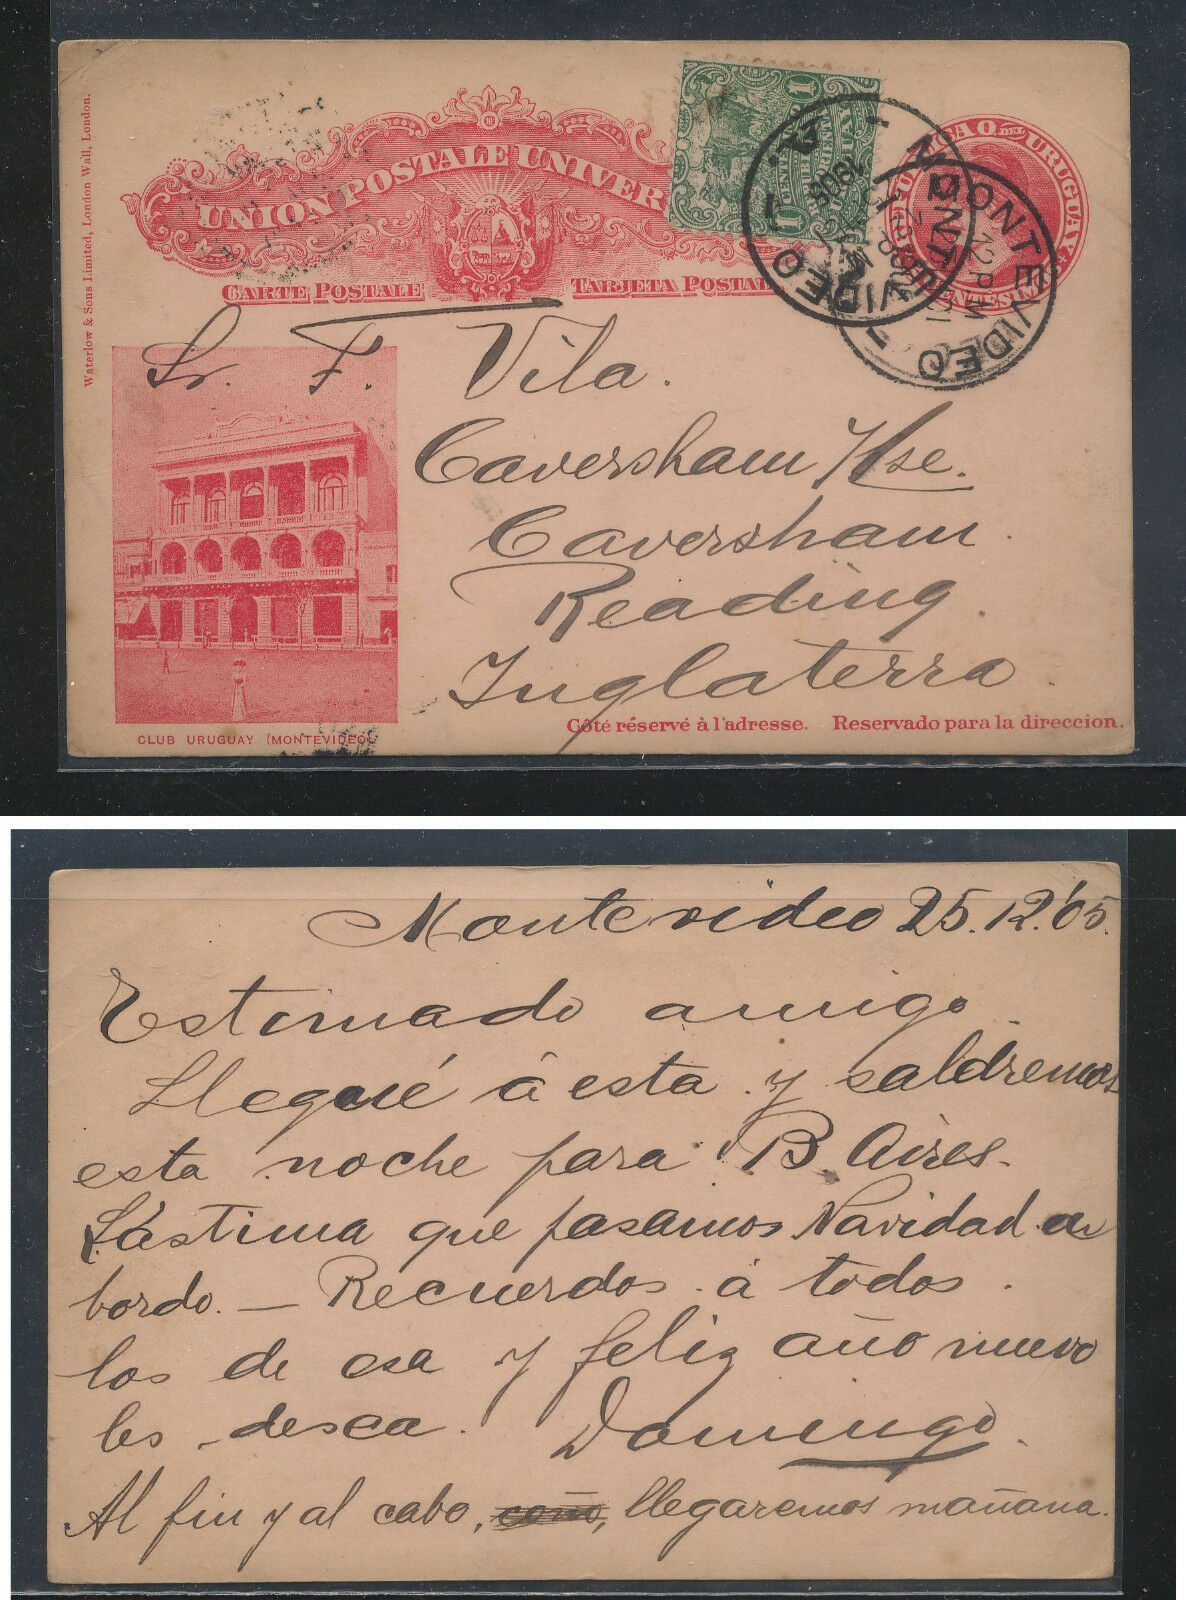 Waterlow & Sons Limited, London Wall, London.
UNION POSTALE UNIVER
CARTE POSTALE TARJETA POSTAL
1 1
MONTEVIDEO
MONTEVIDEO
12 P M
Sr. F. Vila.
Caversham Hse.
Caversham.
Reading.
Inglaterra.
Côté réservé à l'adresse. Reservado para la direccion.
CLUB URUGUAY (MONTEVIDEO)
Montevideo 25.12.'05.
Estimado amigo
Llegué á esta y saldremos
esta noche para B. Aires.
Lástima que pasamos Navidad a
bordo. — Recuerdos á todos.
los de esa y feliz año nuevo
les desea. Domingo.
Al fin y al cabo, coño, llegaremos mañana.